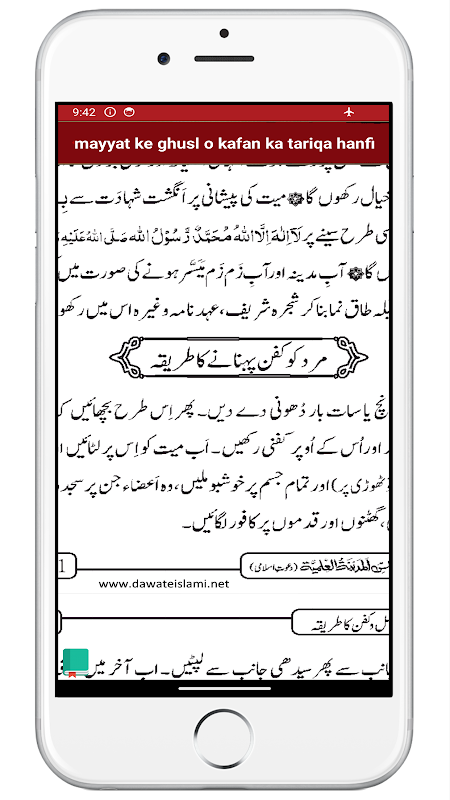 9:42
mayyat ke ghusl o kafan ka tariqa hanfi
خیال رکھوں گا ۞ میت کی پیشانی پر اَنگشت شہادَت سے
طرح سینے پر لَآاِلٰہَ اِلَّا اللہُ مُحَمَّدٌ رَّسُوْلُ اللہ صَلَّی اللہُ عَلَیْہِ
گا ۞ آبِ مدینہ اور آبِ زَم زَم مُیَسَّر ہونے کی صورت میں
طاق نما بنا کر شجرہ شریف، عہد نامہ وغیرہ اس میں رکھو
مرد کو کفن پہنانے کا طریقہ
یا سات بار دُھونی دے دیں۔ پھر اِس طرح بچھائیں کہ
اور اُس کے اُوپر کفنی رکھیں۔ اَب میت کو اِس پر لٹائیں
ٹھوڑی پر) اور تمام جسم پر خوشبو ملیں، وہ اَعضاء جن پر سجد
، گھٹنوں اور قدموں پر کافور لگائیں۔
اَلْمَدِیْنَۃُ الْعِلْمِیَّۃ (دعوتِ اسلامی)
1
www.dawateislami.net
و کفن کا طریقہ
سے پھر سیدھی جانب سے لپٹیں۔ اب آخر میں